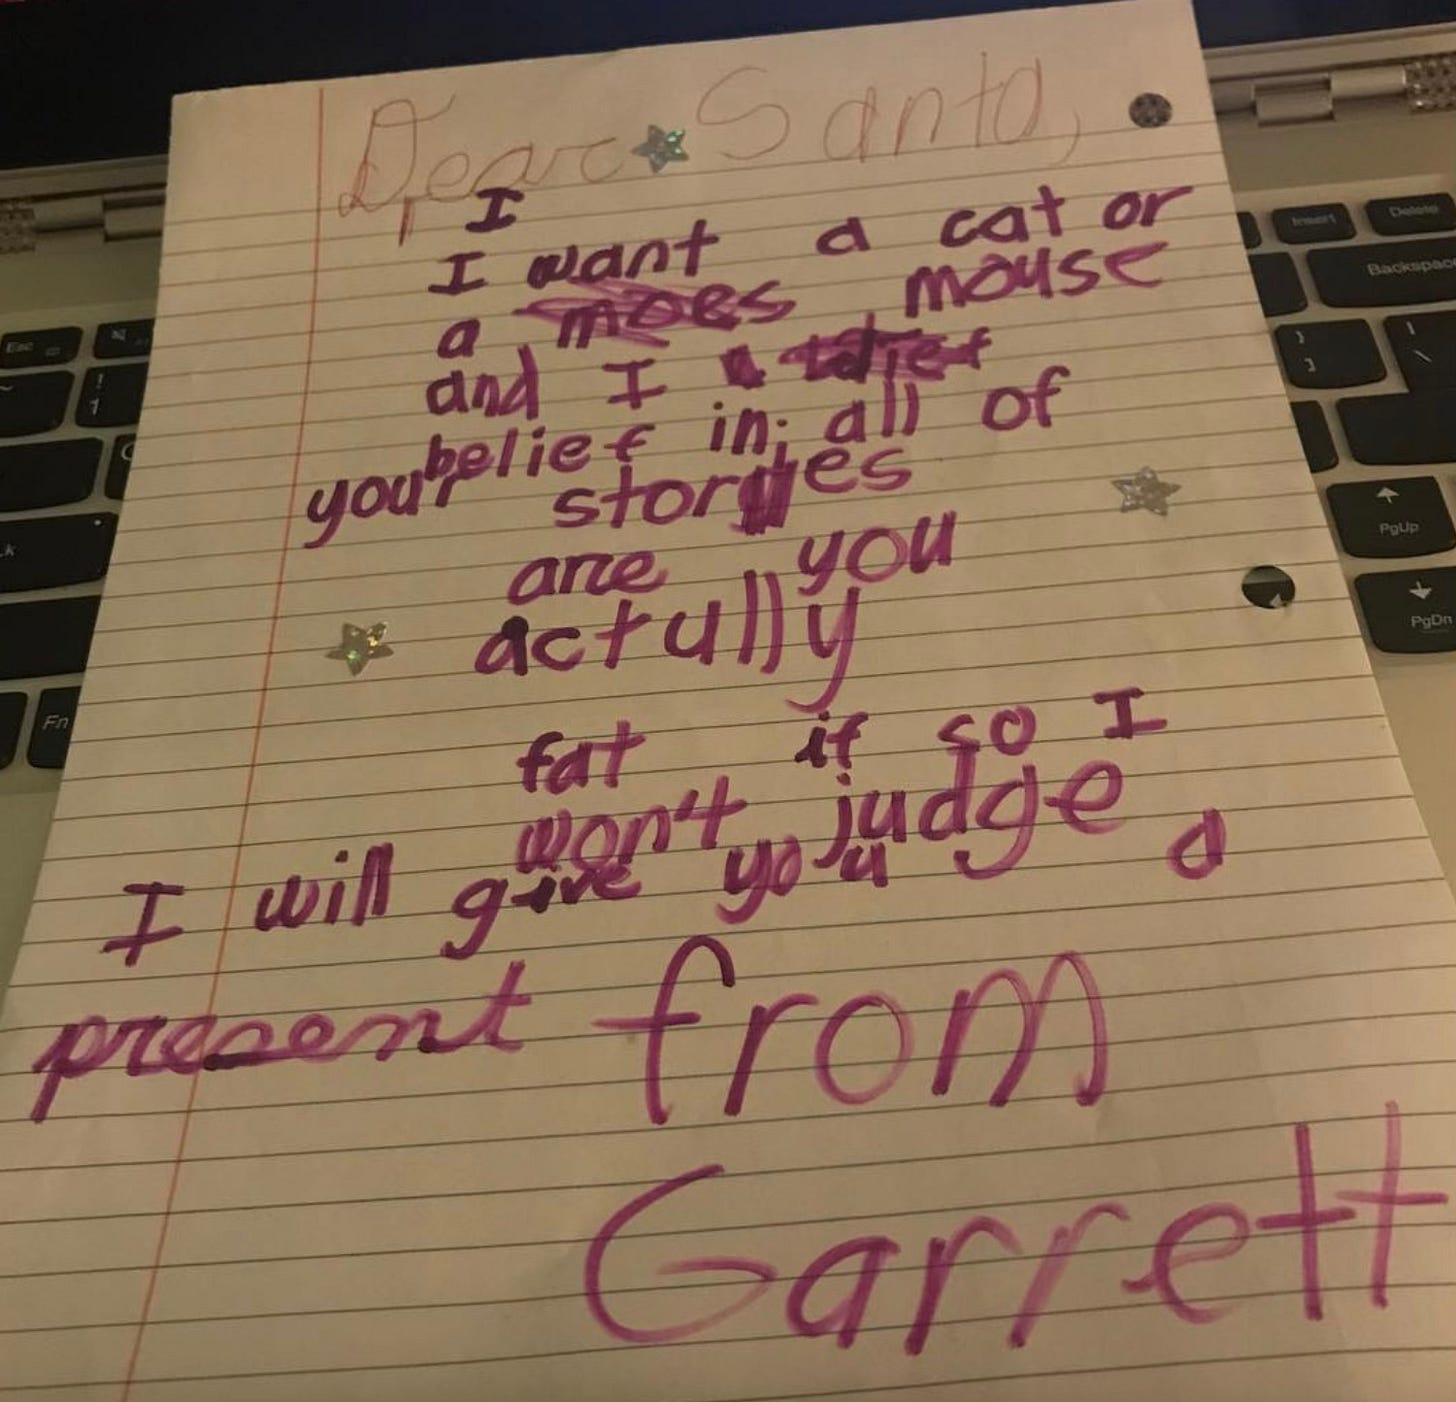 Dear Santa,
I
I want a cat or
a moes mouse
and I
belief in all of
your stories
are you
actully
fat if so I
won't judge
I will give you a
present from
Garrett
Esc
Fn
Insert
Delete
Backspace
PgUp
PgDn